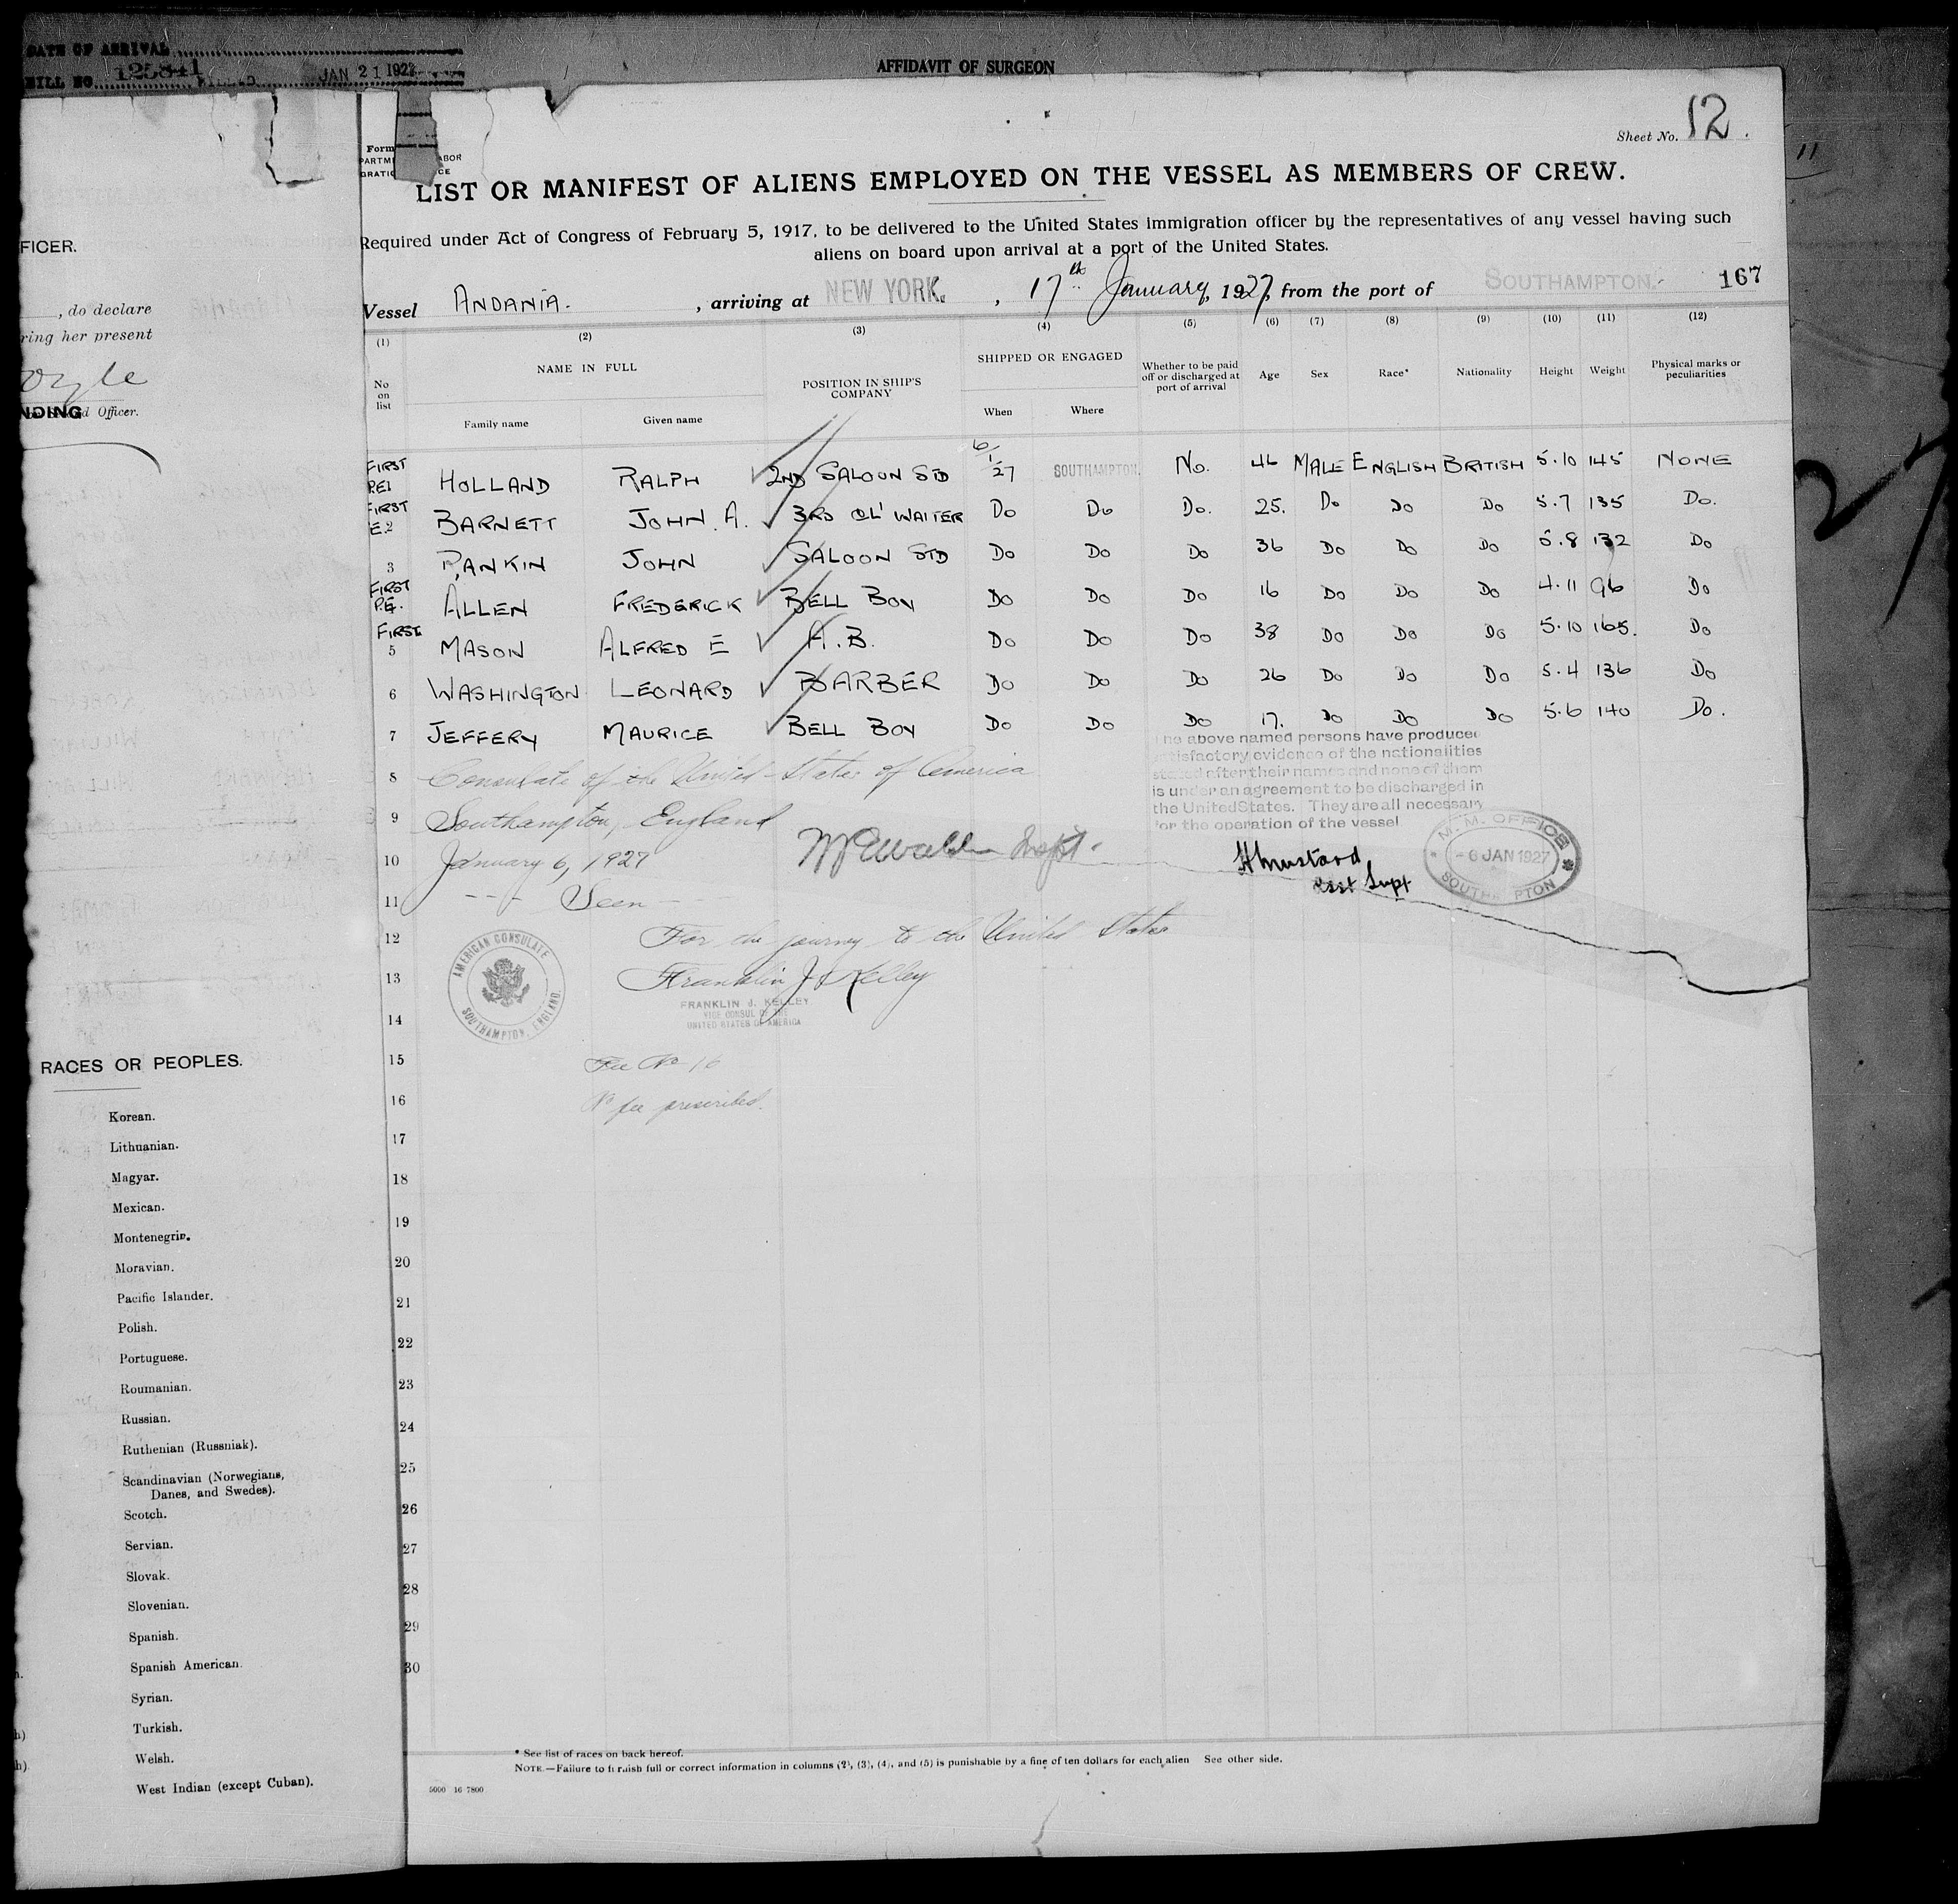 DATE OF ARRIVAL
BILL NO. 125841 FILED JAN 21 1927
AFFIDAVIT OF SURGEON
FICER.
, do declare
ring her present
oyle
NDING
d Officer.
RACES OR PEOPLES.
Korean.
Lithuanian.
Magyar.
Mexican.
Montenegrin.
Moravian.
Pacific Islander.
Polish.
Portuguese.
Roumanian.
Russian.
Ruthenian (Russniak).
Scandinavian (Norwegians,
Danes, and Swedes).
Scotch.
Servian.
Slovak.
Slovenian.
Spanish.
Spanish American.
Syrian.
Turkish.
Welsh.
West Indian (except Cuban).
Form
PARTM ABOR
GRATIO CE
Sheet No. 12.
11
LIST OR MANIFEST OF ALIENS EMPLOYED ON THE VESSEL AS MEMBERS OF CREW.
Required under Act of Congress of February 5, 1917, to be delivered to the United States immigration officer by the representatives of any vessel having such
aliens on board upon arrival at a port of the United States.
Vessel ANDANIA. , arriving at NEW YORK. , 17th January, 1927, from the port of SOUTHAMPTON. 167
(1) (2) (3) (4) (5) (6) (7) (8) (9) (10) (11) (12)
No on list
NAME IN FULL
Family name Given name
POSITION IN SHIP'S COMPANY
SHIPPED OR ENGAGED
When Where
Whether to be paid off or discharged at port of arrival
Age Sex Race* Nationality Height Weight Physical marks or peculiarities
FIRST RE1 HOLLAND RALPH 2ND SALOON STD 6/1/27 SOUTHAMPTON. No. 46 MALE ENGLISH BRITISH 5.10 145 NONE
FIRST E.2 BARNETT JOHN. A. 3RD CL' WAITER Do Do Do. 25. Do Do Do 5.7 135 Do.
3 RANKIN JOHN SALOON STD Do Do Do 36 Do Do Do 5.8 132 Do
FIRST P.E. ALLEN FREDERICK BELL BOY Do Do Do 16 Do Do Do 4.11 96 Do
FIRST 5 MASON ALFRED E A.B. Do Do Do 38 Do Do Do 5.10 165. Do
6 WASHINGTON LEONARD BARBER Do Do Do 26 Do Do Do 5.4 136 Do
7 JEFFERY MAURICE BELL BOY Do Do Do 17. Do Do Do 5.6 140 Do.
he above named persons have produced
atisfactory evidence of the nationalities
stated after their names and none of them
is under an agreement to be discharged in
the United States. They are all necessary
for the operation of the vessel
8 Consulate of the United States of America
9 Southampton, England
10 January 6, 1927 Supt.
H Mustard
Asst Supt
M. M. OFFICE
- 6 JAN 1927
SOUTH PTON
11 --- Seen ---
12 For the journey to the United States
13 Franklin J. Kelley
FRANKLIN J. KELLEY
VICE CONSUL OF THE
UNITED STATES OF AMERICA
AMERICAN CONSULATE
SOUTHAMPTON, ENGLAND.
14
15 Fee No 16
16 No fee prescribed.
17
18
19
20
21
22
23
24
25
26
27
28
29
30
27
* See list of races on back hereof.
NOTE.—Failure to furnish full or correct information in columns (2), (3), (4), and (5) is punishable by a fine of ten dollars for each alien See other side.
5000 16 7800